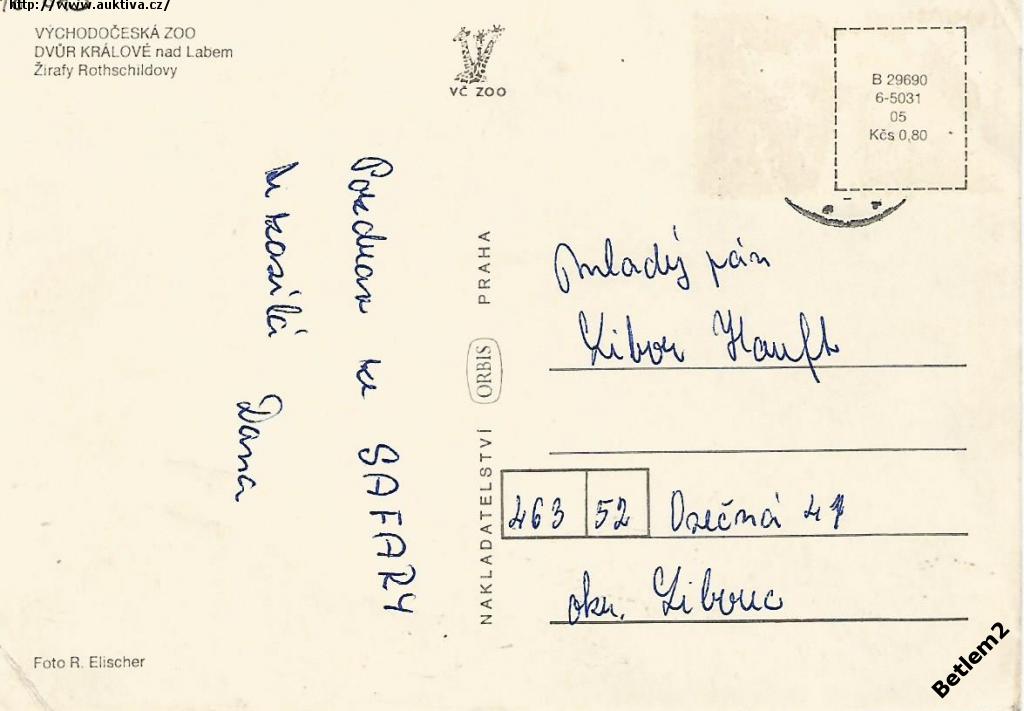 http://www.auktiva.cz/
VÝCHODOČESKÁ ZOO
DVŮR KRÁLOVÉ nad Labem
Žirafy Rothschildovy
VČ ZOO
B 29690
6-5031
05
Kčs 0,80
Pozdrav ze
SAFARY
Ti posílá
Dana
NAKLADATELSTVÍ ORBIS PRAHA
Mladý pán
Libor Hauft
463 52 Osečná 41
okr. Liberec
Foto R. Elischer
Betlem2